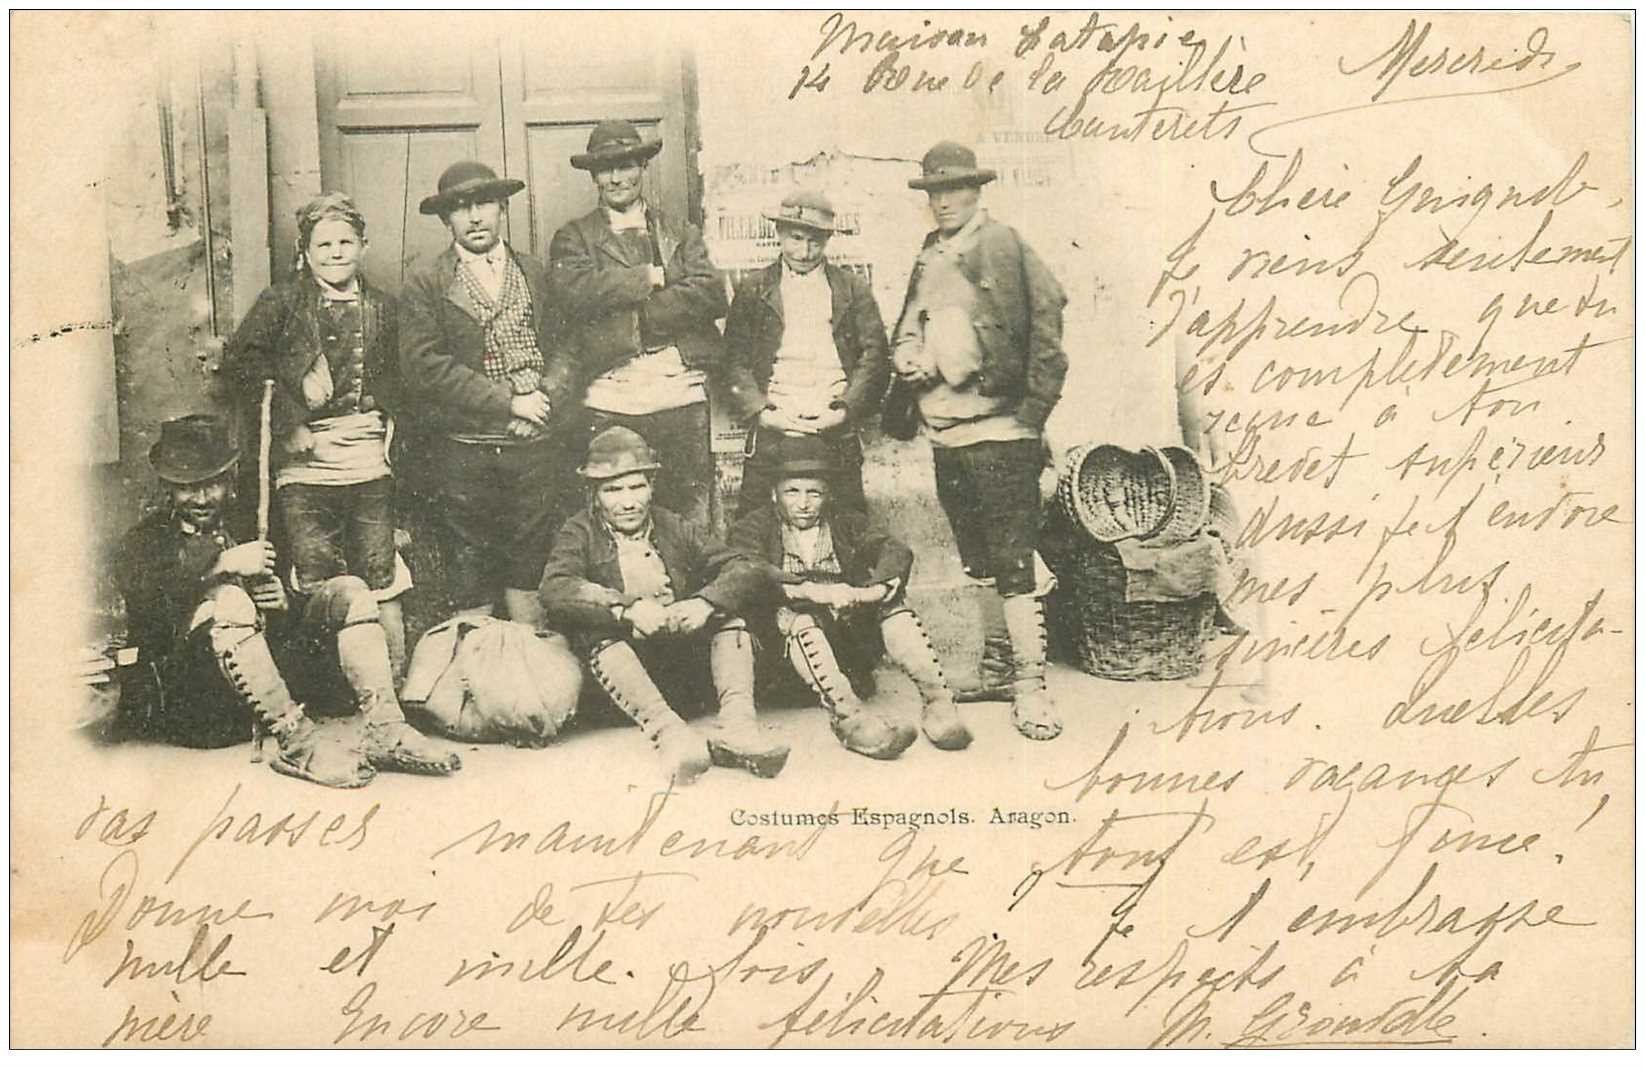 Maison Latapie
14 Rue de la Raillère
Cauterets
Mercredi
Chère Guignole,
Je viens seulement
d'apprendre que tu
es complètement
reçue à ton
brevet supérieur
aussi je t'envoie
mes plus
sincères félicita-
tions. Quelles
bonnes vacances tu
vas passer maintenant que tout est, fini!
Donne moi de tes nouvelles Je t'embrasse
mille et mille fois, Mes respects à ta
mère Encore mille félicitations M.
A VENDRE
VILLE DE
Costumes Espagnols. Aragon.